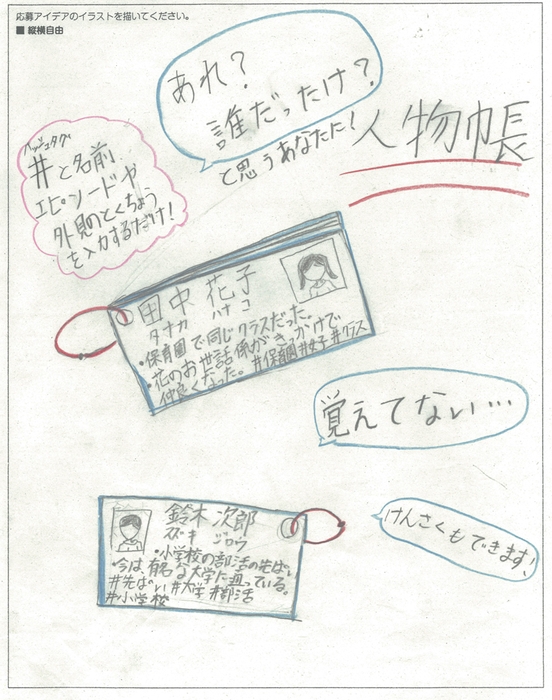 応募アイデアのイラストを描いてください。
■ 縦横自由
あれ?
誰だったけ?
と思うあなたに!
人物帳
ハッシュタグ
#と名前
エピソードや
外見のとくちょう
を入力するだけ!
田中 花子
タナカ ハナコ
・保育園で同じクラスだった。
・花のお世話係がきっかけで
仲良くなった。#保育園#女子#クラス
覚えてない…
鈴木 次郎
スズキ ジロウ
・小学校の部活の先ぱい
・今は有名な大学に通っている。
#先ぱい #大学 #部活
#小学校
けんさくもできます!